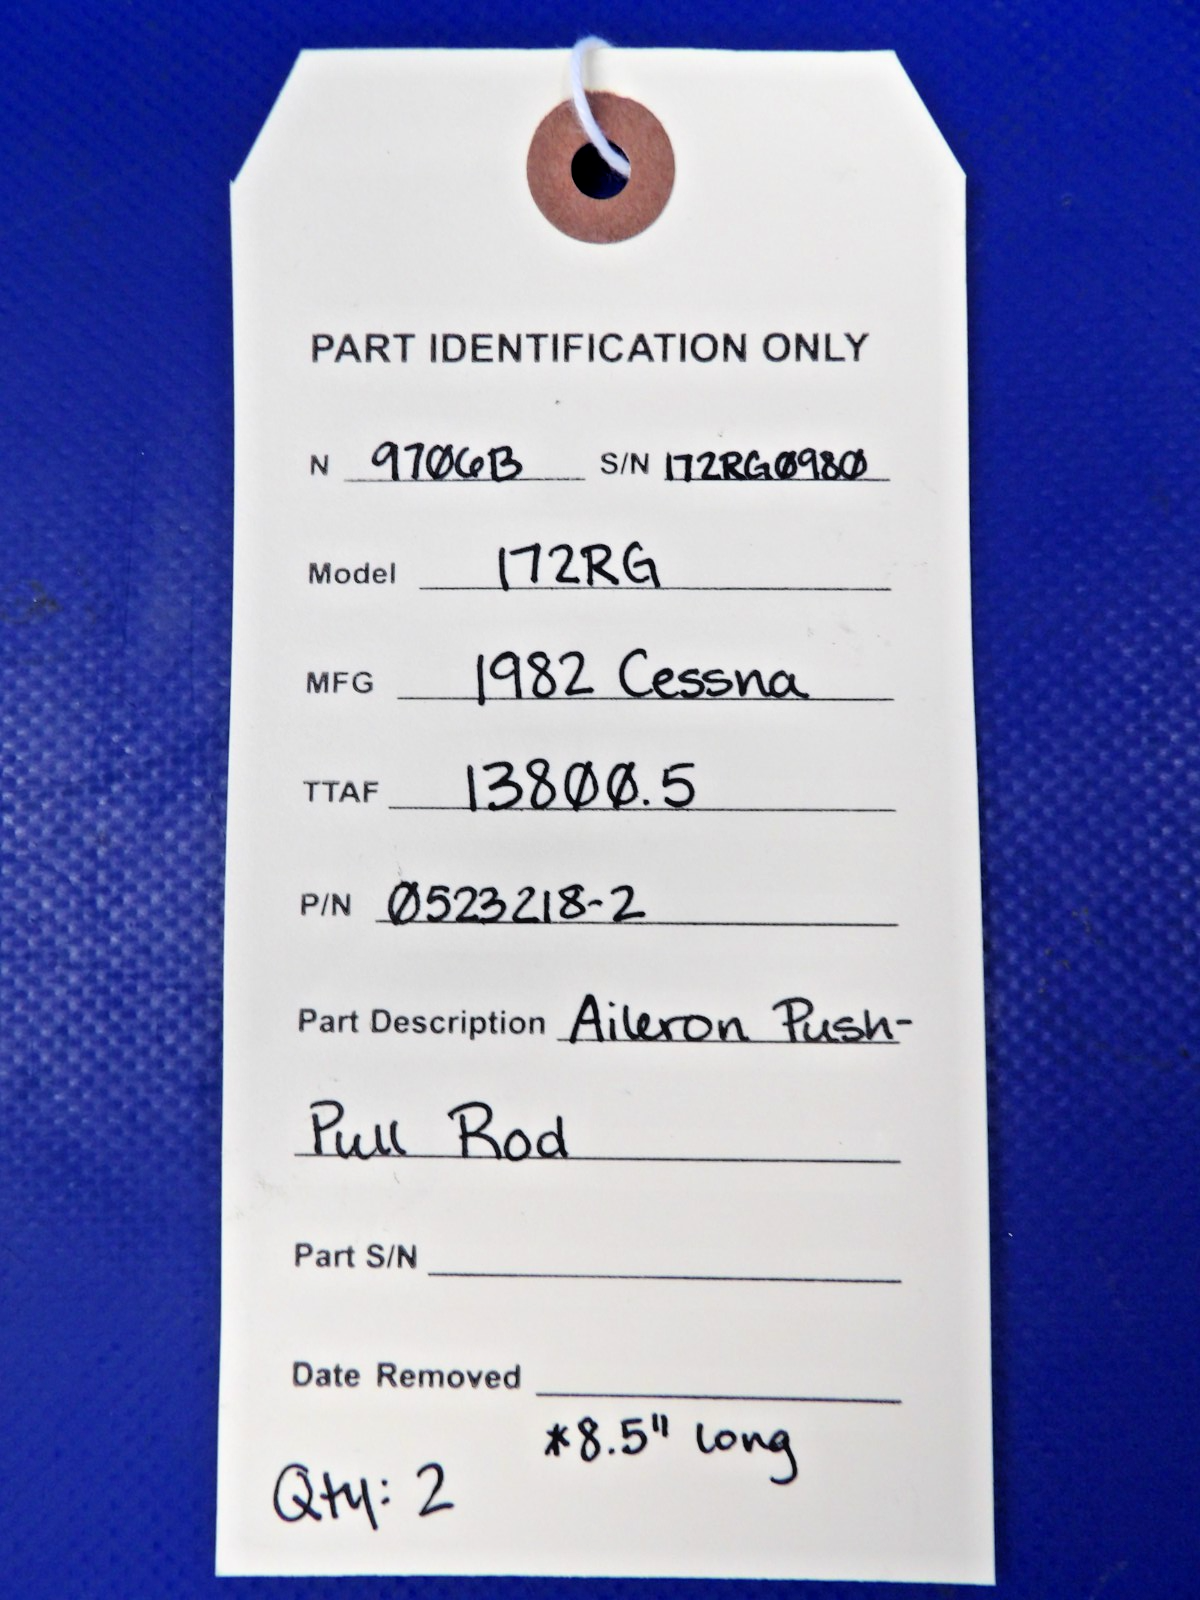 PART IDENTIFICATION ONLY
N 9706B S/N 172RG0980
Model 172RG
MFG 1982 Cessna
TTAF 13800.5
P/N 0523218-2
Part Description Aileron Push-
Pull Rod
Part S/N
Date Removed
*8.5" long
Qty: 2